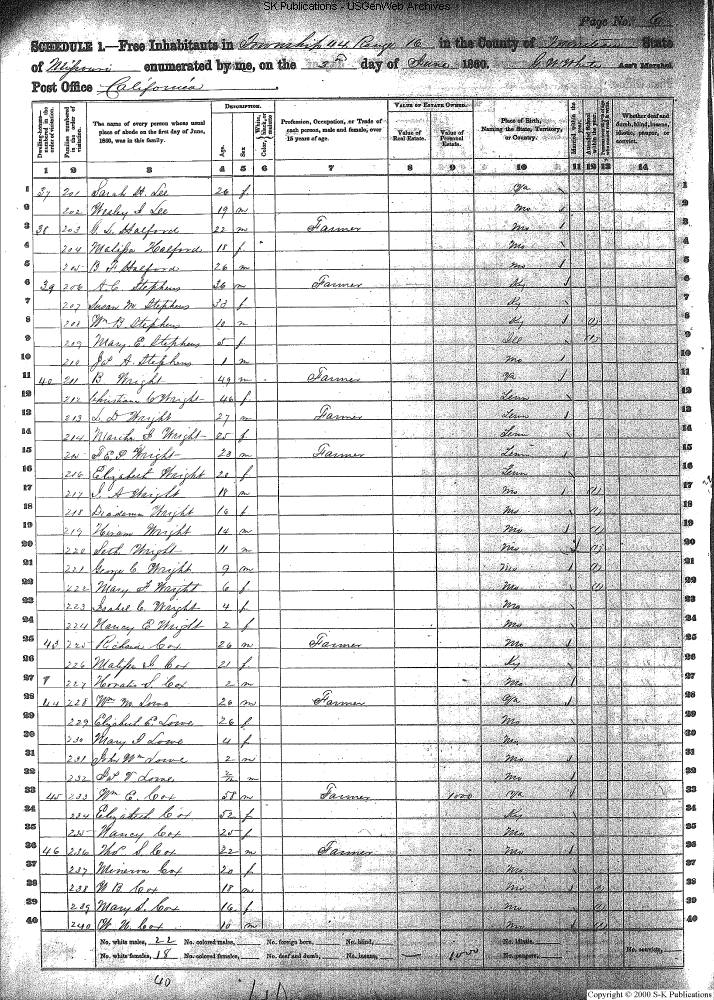 SK Publications - USGenWeb Archives
Page No. 6
SCHEDULE 1.—Free Inhabitants in Township 44 Range 16 in the County of Moniteau State
of Missouri enumerated by me, on the 5th day of June 1860. Ass't Marshal
Post Office California
The name of every person whose usual place of abode on the first day of June, 1860, was in this family.
DESCRIPTION.
Age.
Sex
Profession, Occupation, or Trade of each person, male and female, over 15 years of age.
VALUE OF ESTATE OWNED.
Value of Real Estate.
Value of Personal Estate.
Place of Birth, Naming the State, Territory, or Country.
Whether deaf and dumb, blind, insane, idiotic, pauper, or convict.
1 2 3 4 5 6 7 8 9 10 11 12 13 14
1 37 201 Sarah H. Lee 26 f Va 1
2 202 Wesley Lee 19 m Mo 2
3 38 203 Halford 22 m Farmer Mo 3
4 204 Malissa Halford 18 f Mo 4
5 205 B F Halford 26 m Mo 5
6 39 206 A. C. Stephens 36 m Farmer Ky 6
7 207 Susan M. Stephens 33 f Ky 7
8 208 Wm B Stephens 10 m Ky 8
9 209 Mary E. Stephens 5 f Ill 9
10 210 Jas A Stephens 1 m Mo 10
11 40 211 B Wright 49 m Farmer Va 11
12 212 Christiana C Wright 46 f Tenn 12
13 213 L. D Wright 27 m Farmer Tenn 13
14 214 Martha Wright 25 f Tenn 14
15 215 Wright 23 m Farmer Tenn 15
16 216 Elizabeth Wright 20 f Tenn 16
17 217 A Wright 18 m Mo 17
18 218 Wright 16 f Mo 18
19 219 Hiram Wright 14 m Mo 19
20 220 Seth Wright 11 m Mo 20
21 221 George C. Wright 9 m Mo 21
22 222 Mary F Wright 6 f Mo 22
23 223 Isabel C. Wright 4 f Mo 23
24 224 Nancy E Wright 2 f Mo 24
25 43 225 Richard Cox 26 m Farmer Mo 25
26 226 Malissa Cox 21 f Ky 26
27 227 Horatio S. Cox 2 m Mo 27
28 44 228 Wm M. Lowe 26 m Farmer Va 28
29 229 Elizabeth E. Lowe 26 f Mo 29
30 230 Mary Lowe 4 f Mo 30
31 231 John Wm Lowe 2 m Mo 31
32 232 Jas Lowe m Mo 32
33 45 233 Wm E. Cox 58 m Farmer 1000 Va 33
34 234 Elizabeth Cox 52 f Ky 34
35 235 Nancy Cox 25 f Mo 35
36 46 236 Thos S. Cox 22 m Farmer Mo 36
37 237 Minerva Cox 20 f Mo 37
38 238 B Cox 18 m Mo 38
39 239 Mary S. Cox 16 f Mo 39
40 240 W. H. Cox 10 m Mo 40
No. white males, 22 No. colored males, No. foreign born, No. blind, No. idiotic,
No. white females, 18 No. colored females, No. deaf and dumb, No. insane, 1000 No. paupers, No. convicts,
40
Copyright © 2000 S-K Publications